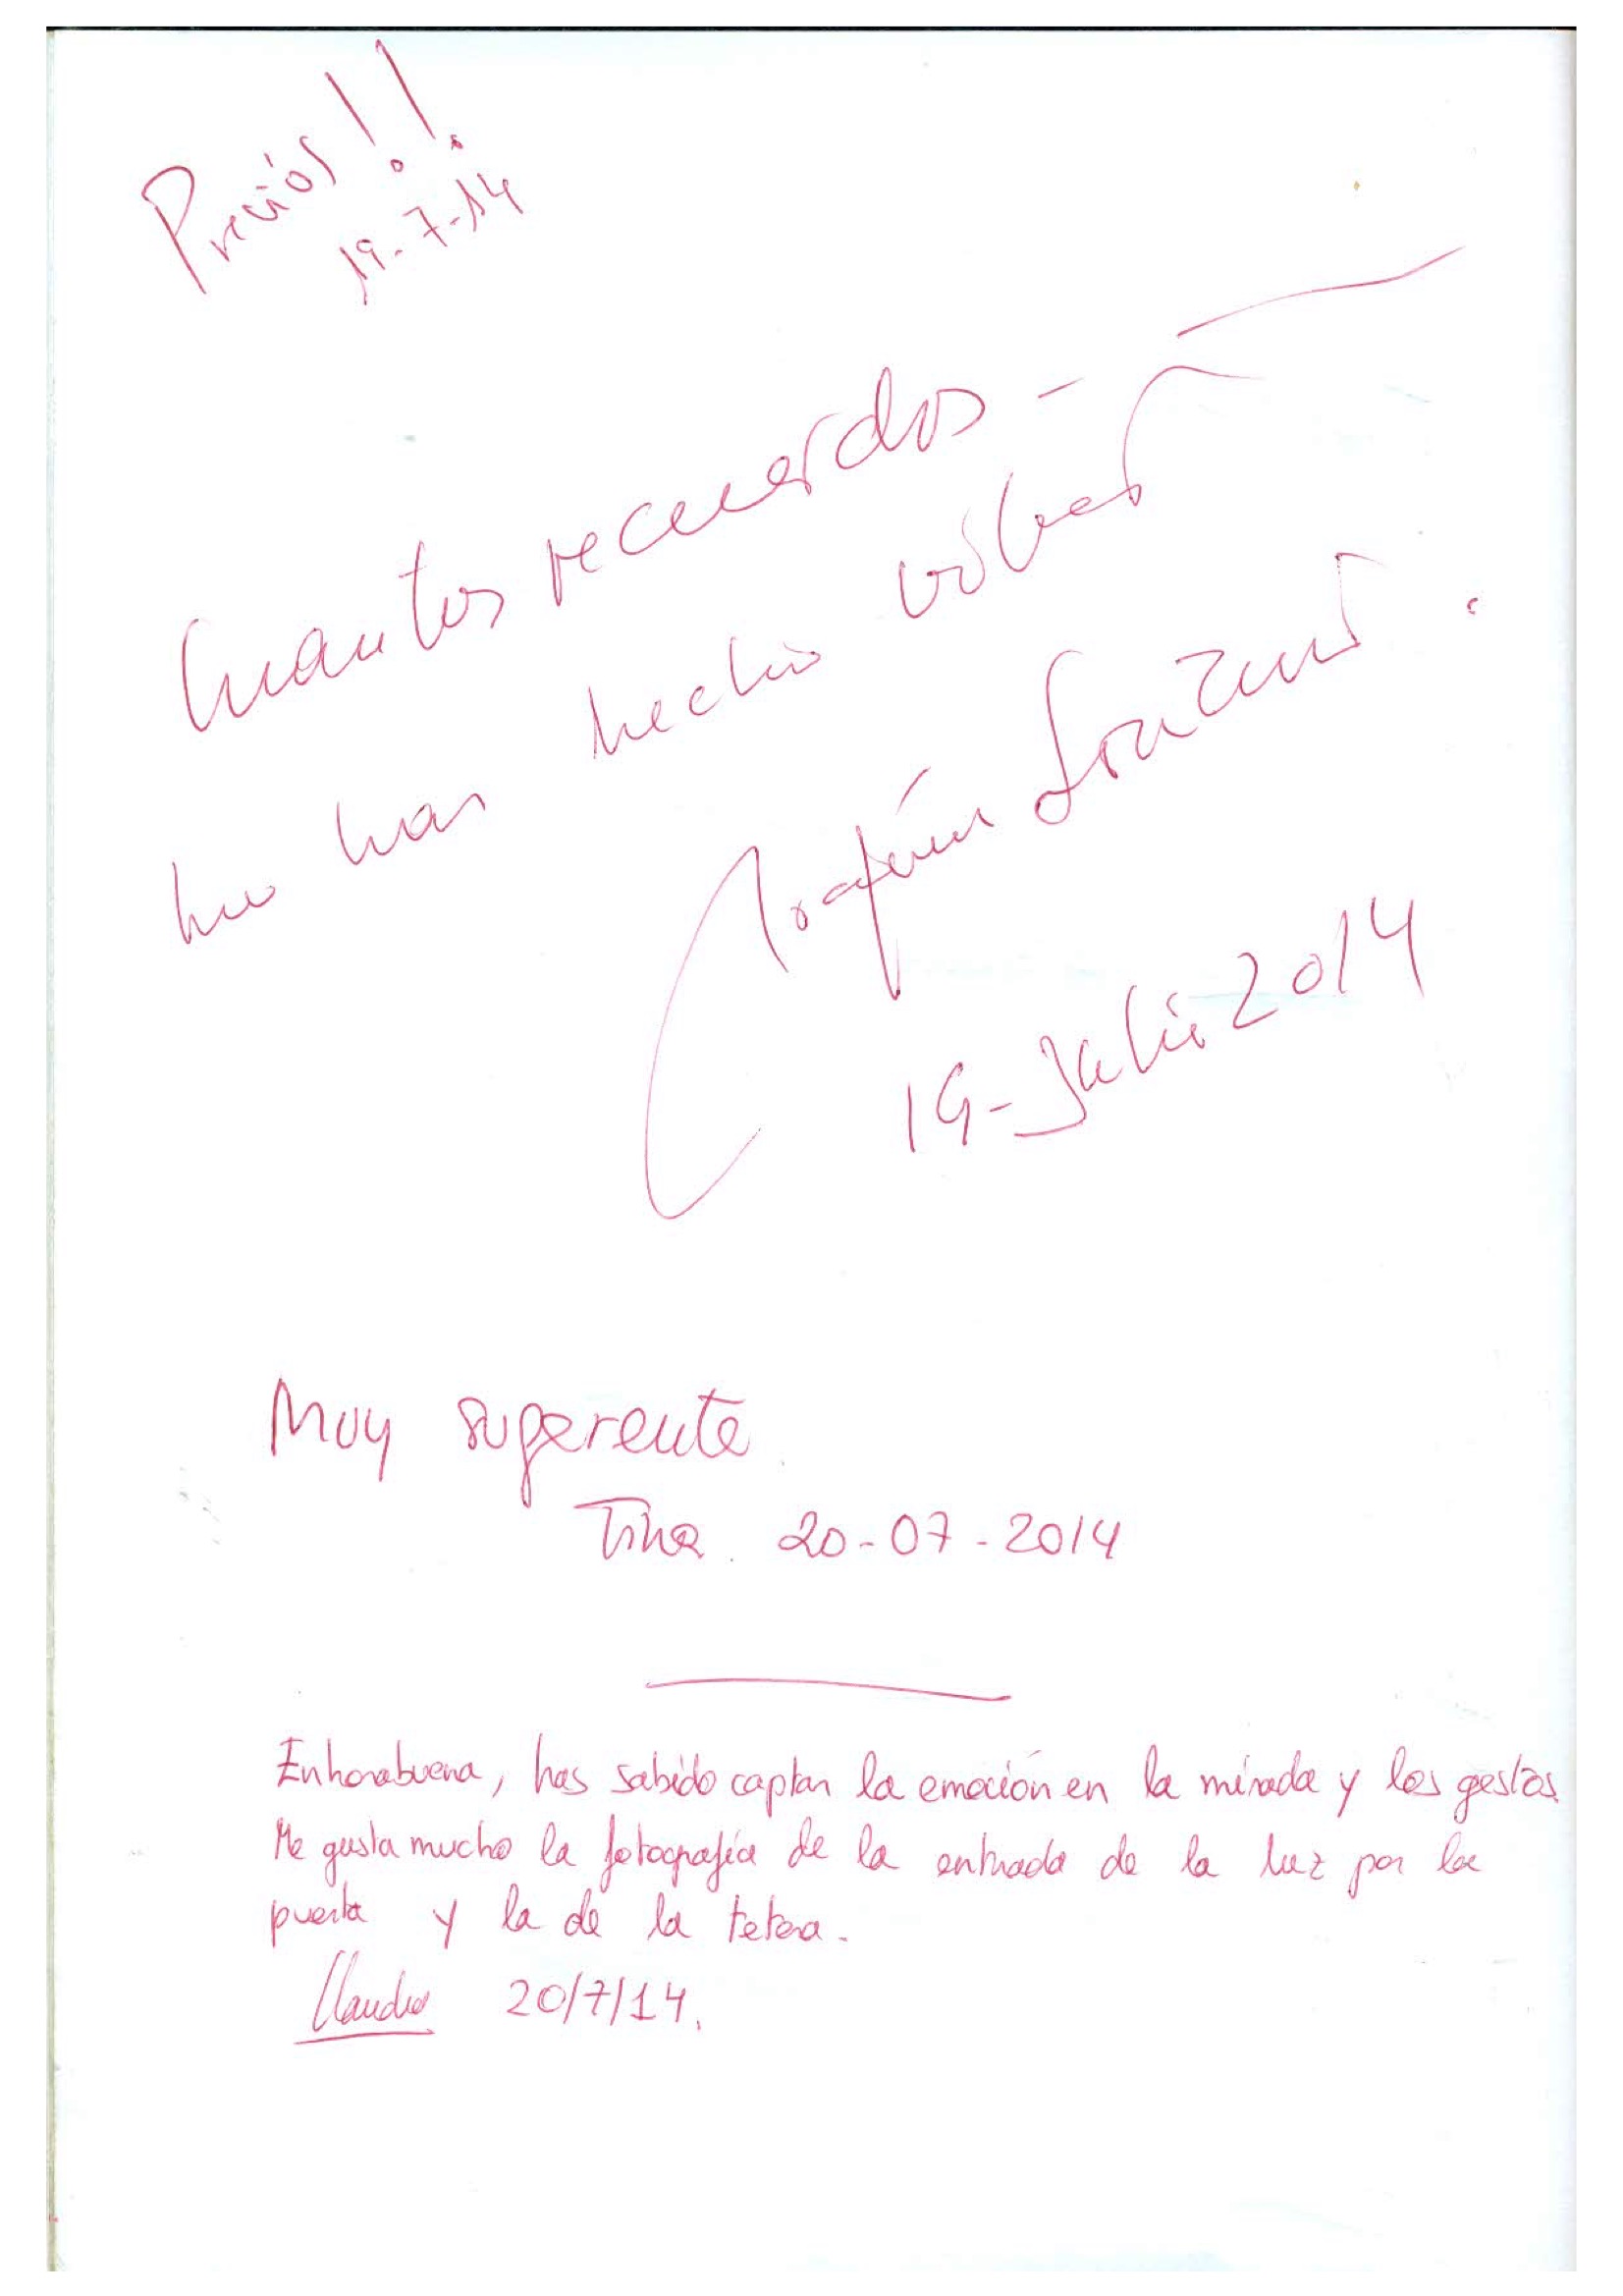 Preciós!!
19-7-14
Cuantos recuerdos -
me has hecho volver
Joaquín
19-Julio 2014
Muy sugerente
Tina. 20-07-2014
Enhorabuena, has sabido captar la emoción en la mirada y los gestos.
Me gusta mucho la fotografía de la entrada de la luz por la
puerta y la de la tetera.
Claudia 20/7/14.